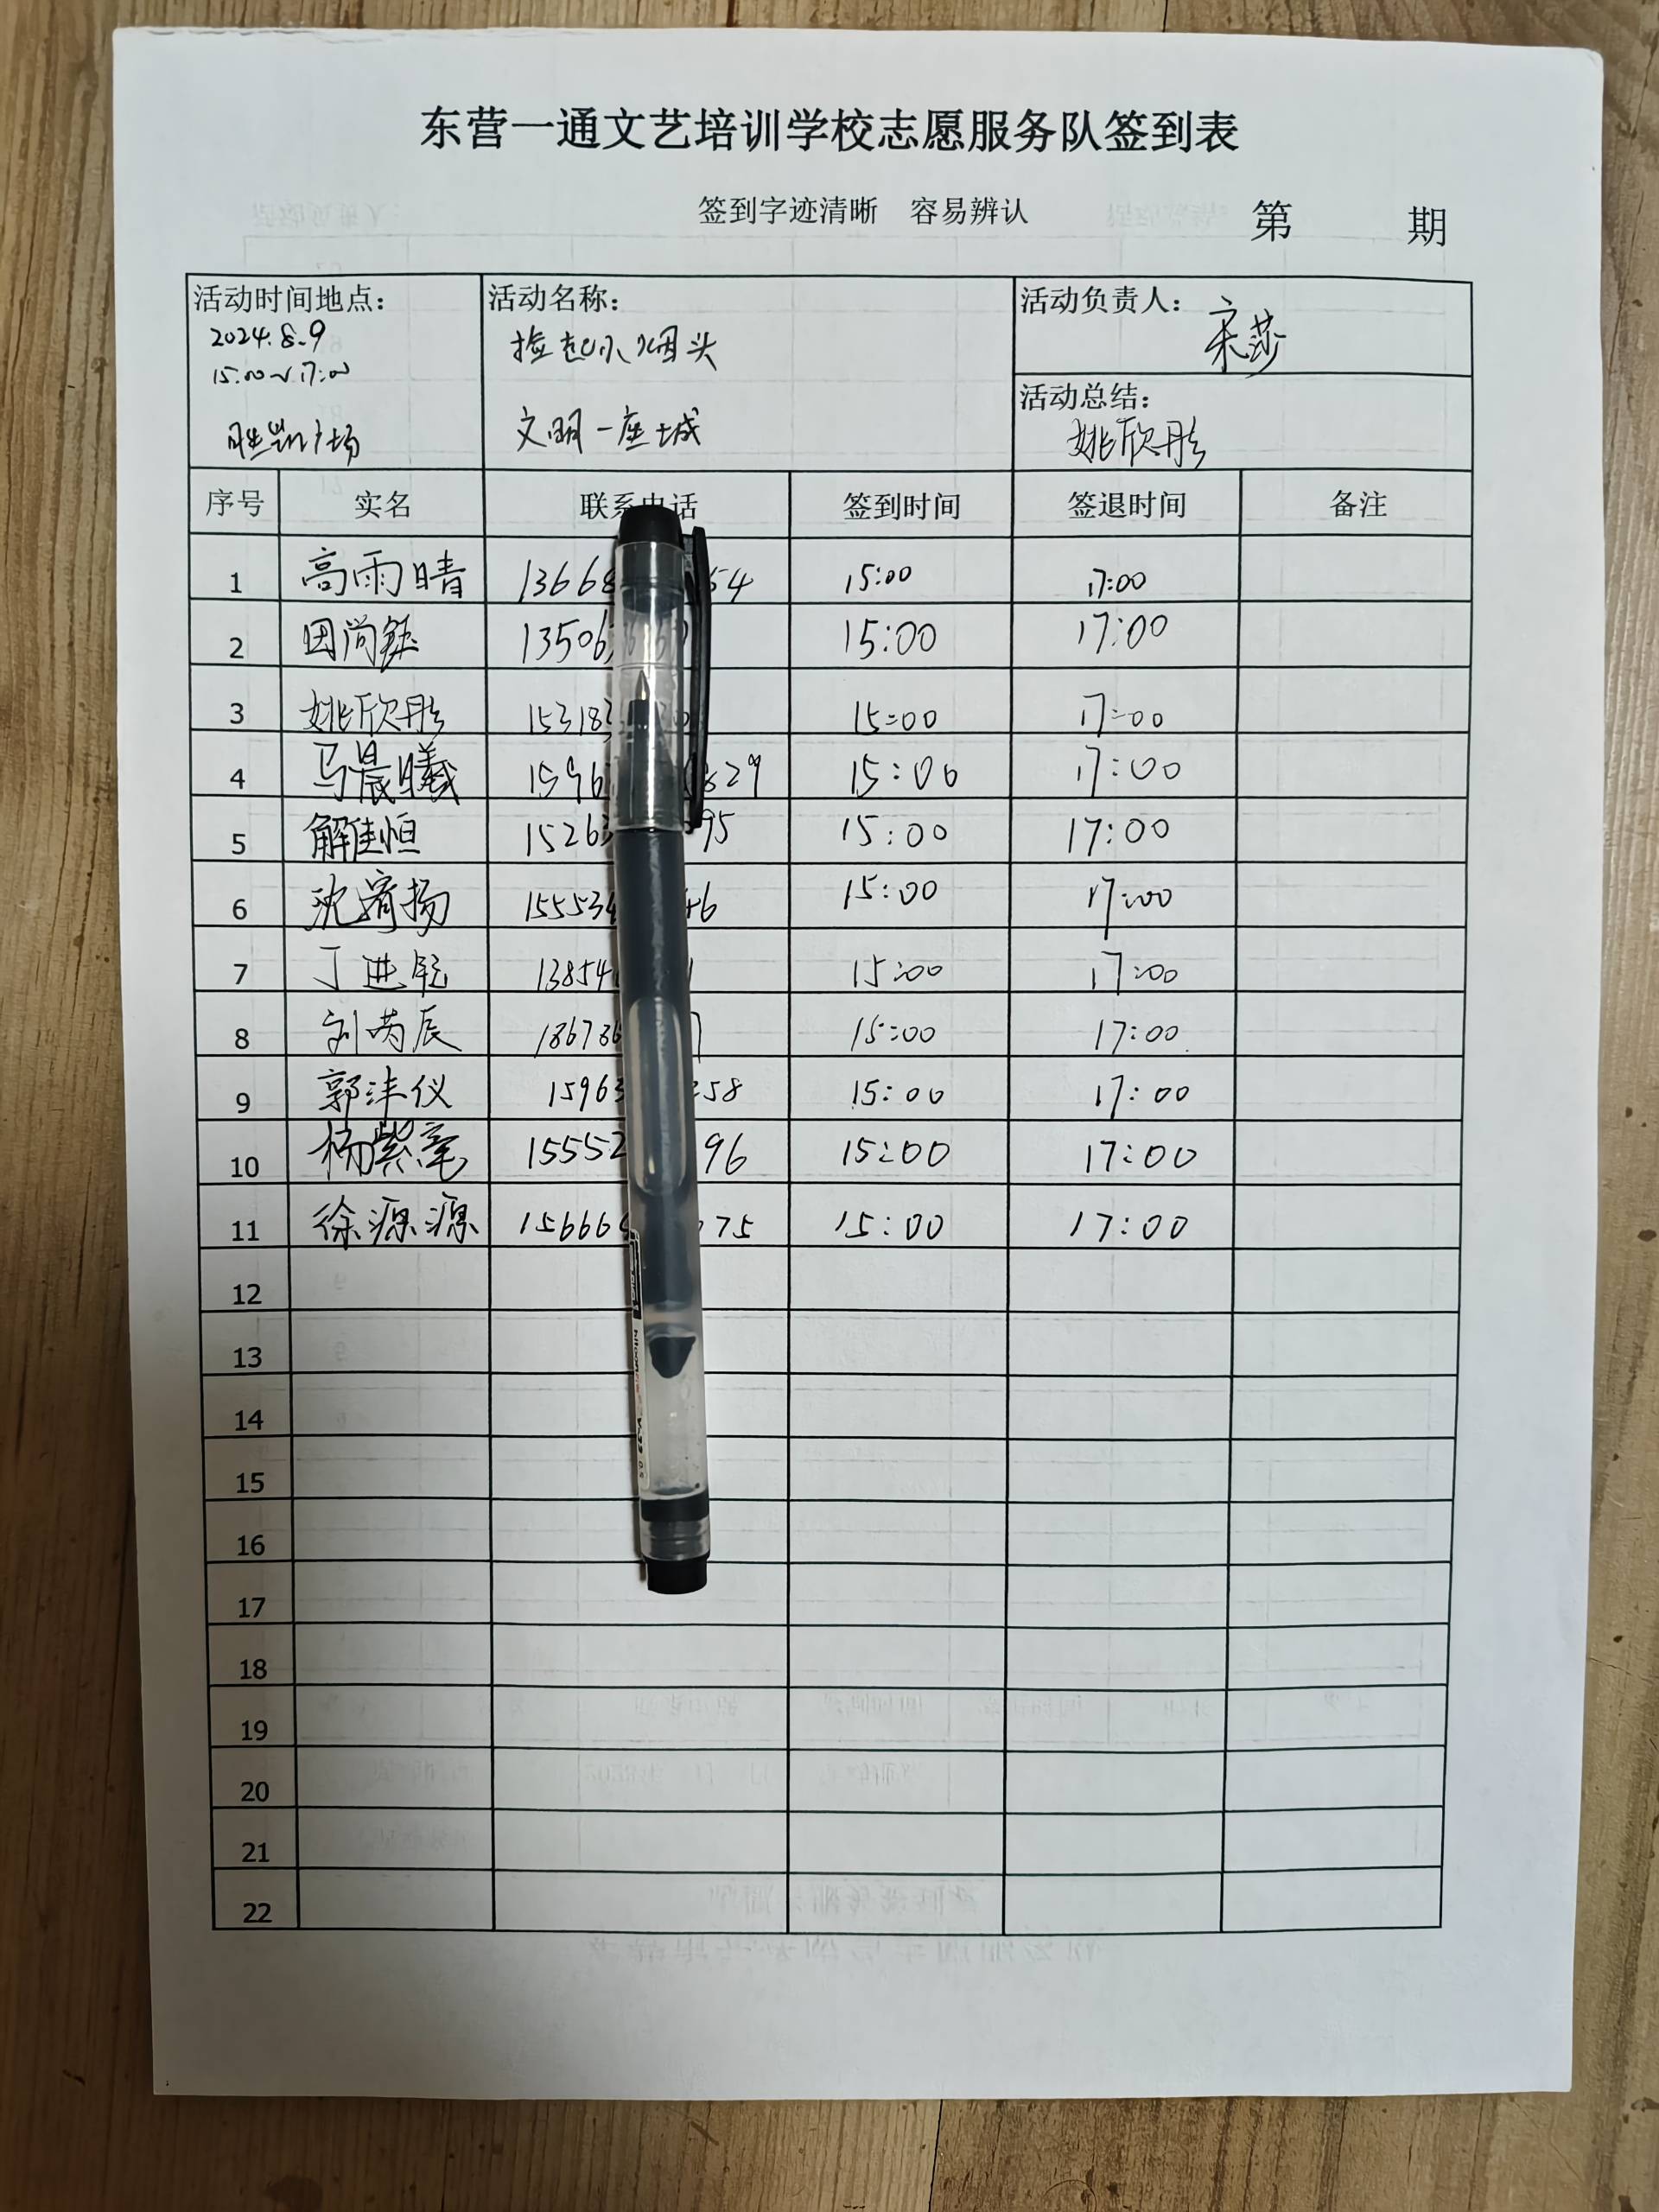 东营一通文艺培训学校志愿服务队签到表
签到字迹清晰 容易辨认 第 期
活动时间地点：
2024.8.9
15:00~17:00
胜凯广场
活动名称：
捡起小烟头
文明一座城
活动负责人：
宋莎
活动总结：
姚欣彤
序号 实名 联系电话 签到时间 签退时间 备注
1 高雨晴 13668 54 15:00 17:00
2 田尚钰 13506 15:00 17:00
3 姚欣彤 15318 15:00 17:00
4 马晨曦 1596 829 15:00 17:00
5 解佳恒 15263 95 15:00 17:00
6 沈 扬 155534 46 15:00 17:00
7 丁进 13854 15:00 17:00
8 刘芮辰 186786 15:00 17:00
9 郭沣仪 15963 258 15:00 17:00
10 杨紫 15552 96 15:00 17:00
11 徐源源 15666 75 15:00 17:00
12
13
14
15
16
17
18
19
20
21
22